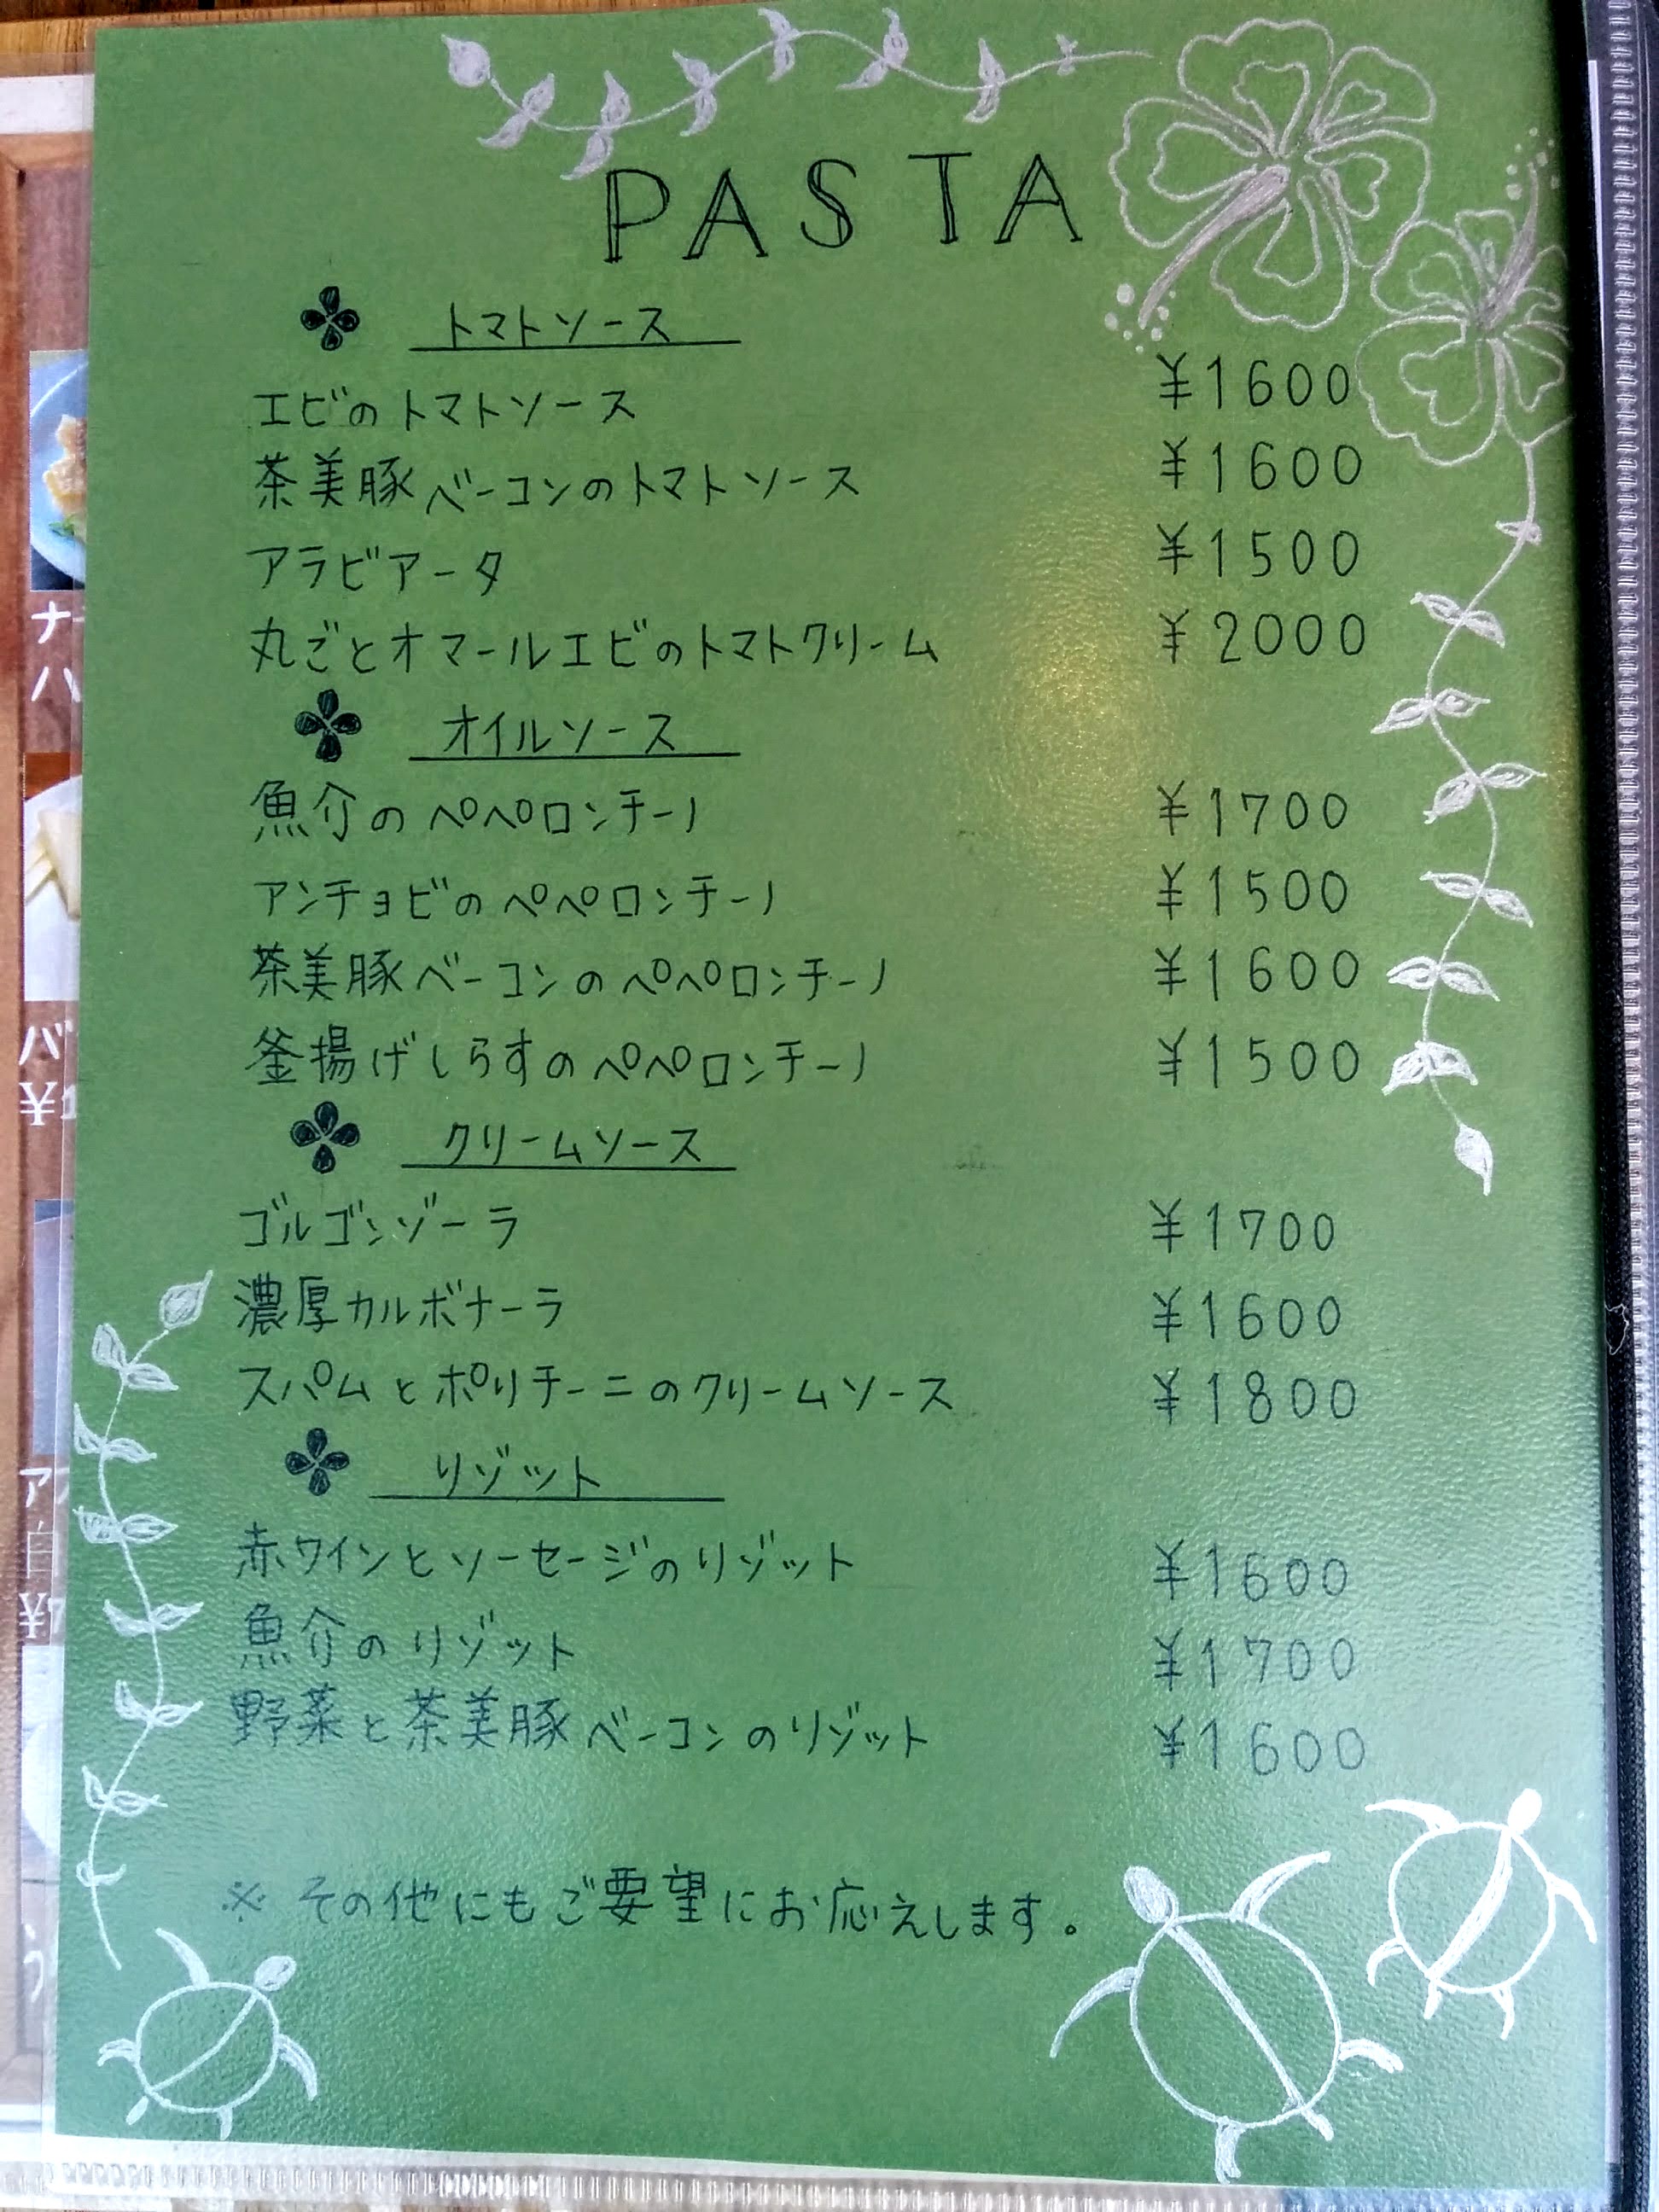 PASTA
トマトソース
エビのトマトソース ¥1600
茶美豚ベーコンのトマトソース ¥1600
アラビアータ ¥1500
丸ごとオマールエビのトマトクリーム ¥2000
オイルソース
魚介のペペロンチーノ ¥1700
アンチョビのペペロンチーノ ¥1500
茶美豚ベーコンのペペロンチーノ ¥1600
釜揚げしらすのペペロンチーノ ¥1500
クリームソース
ゴルゴンゾーラ ¥1700
濃厚カルボナーラ ¥1600
スパムとポリチーニのクリームソース ¥1800
リゾット
赤ワインとソーセージのリゾット ¥1600
魚介のリゾット ¥1700
野菜と茶美豚ベーコンのリゾット ¥1600
※ その他にもご要望にお応えします。